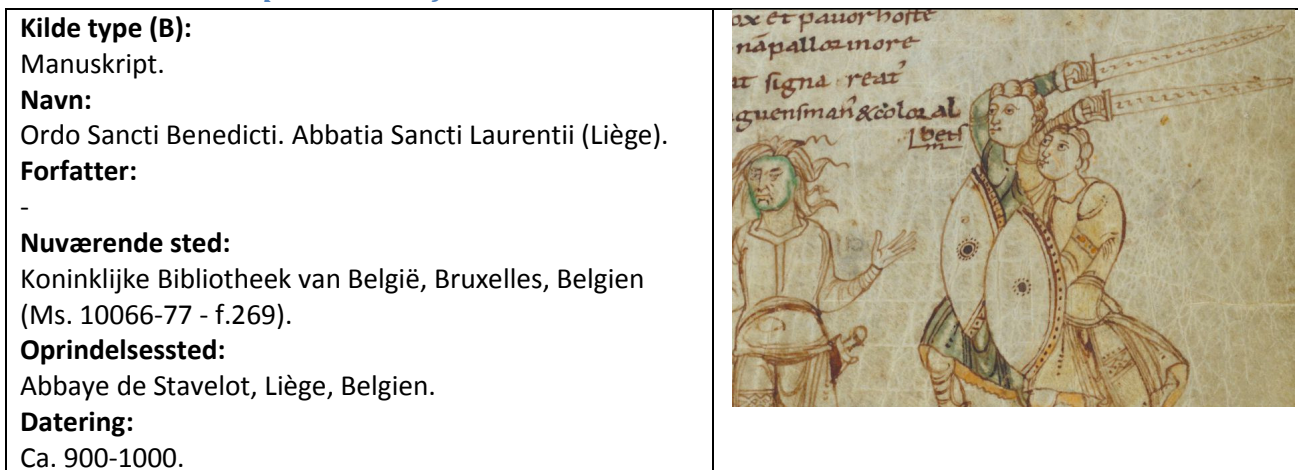 Kilde type (B):
Manuskript.
Navn:
Ordo Sancti Benedicti. Abbatia Sancti Laurentii (Liège).
Forfatter:
-
Nuværende sted:
Koninklijke Bibliotheek van België, Bruxelles, Belgien
(Ms. 10066-77 - f.269).
Oprindelsessted:
Abbaye de Stavelot, Liège, Belgien.
Datering:
Ca. 900-1000.
ox et pauor hoste
pallor in ore
signa
color al